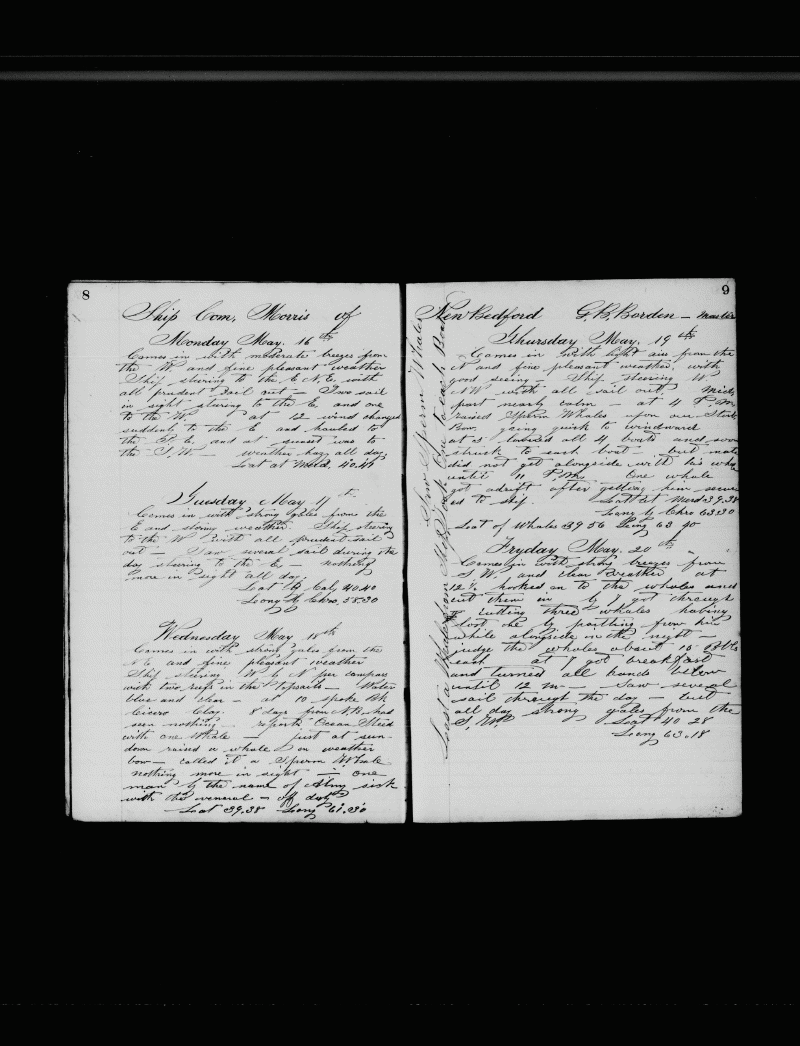 8
Ship Com, Morris of
Monday May. 16th
Comes in with moderate breezes from
the W and fine pleasant weather
Ship steering to the E N E. with
all prudent sail out — Two sail
in sight steering to the E, and one
to the W. at 12 wind changed
suddenly to the E and hauled to
the and at sunset was to
the S.W — weather hazy all day
Lat at Merd. 40.41
Tuesday May 17th
Comes in with strong gales from the
E and stormy weather. Ship steering
to the W with all prudent sail
out — Saw several sail during the
day steering to the E, — nothing
more in sight all day.
Lat by Cal, 40.40
Long by Chro, 58.30
Wednesday May 18th
Comes in with strong gales from the
N E and fine pleasant weather
Ship steering W by N per compass
with two reefs in the Topsails — Water
blue and clear — at 10 spoke Bk
Cicero Clay. 8 days from N.B. had
seen nothing — reports Ocean Steed
with one Whale — just at sun-
down raised a whale on weather
bow — called it a Sperm Whale
nothing more in sight — one
man by the name of Almy sick
with the veneral — off duty
Lat 39.38 Long 61.30
9
New Bedford G. B. Borden — Master
Thursday May, 19th
Comes in with light airs from the
N and fine pleasant weather, with
good seeing — Ship steering W
N W with all sail out. Midd,
part nearly calm at 4 P.M.
raised Sperm Whales upon our Starb
Bow, going quick to windward
at 5 lowered all 4 boats and soon
struck to each boat — but mate
did not get alongside with his whale
until 11 P.M. One whale
got adrift after getting him secur
ed to ship. Lat at Merd 39.38
Long by Chro 63.30
Lat of Whales 39 56 Long 63 90
Fryday May. 20th
Comes in with strong breezes from
S W. and clear Weather at
12½ hooked on to the whales and
cut them in by 7 got through
cutting three whales having
lost one by parthing from his
while alongside in the night —
judge the whales about 15 Bbls
each at 7 got breakfast
and turned all hands below
until 12 m — Saw several
sail through the day — but
all day strong gales from the
S. W. Lat 40 28
Long 63.18